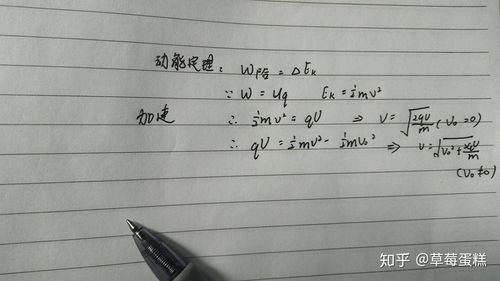 动能定理: W合 = ΔEₖ
∵ W = Uq  Eₖ = ½mv²
加速 ∴ ½mv² = qU ⇒ v = √(2qU/m) (v₀=0)
∴ qU = ½mv² - ½mv₀² ⇒ v = √(v₀² + 2qU/m)
(v₀≠0)
知乎 @草莓蛋糕